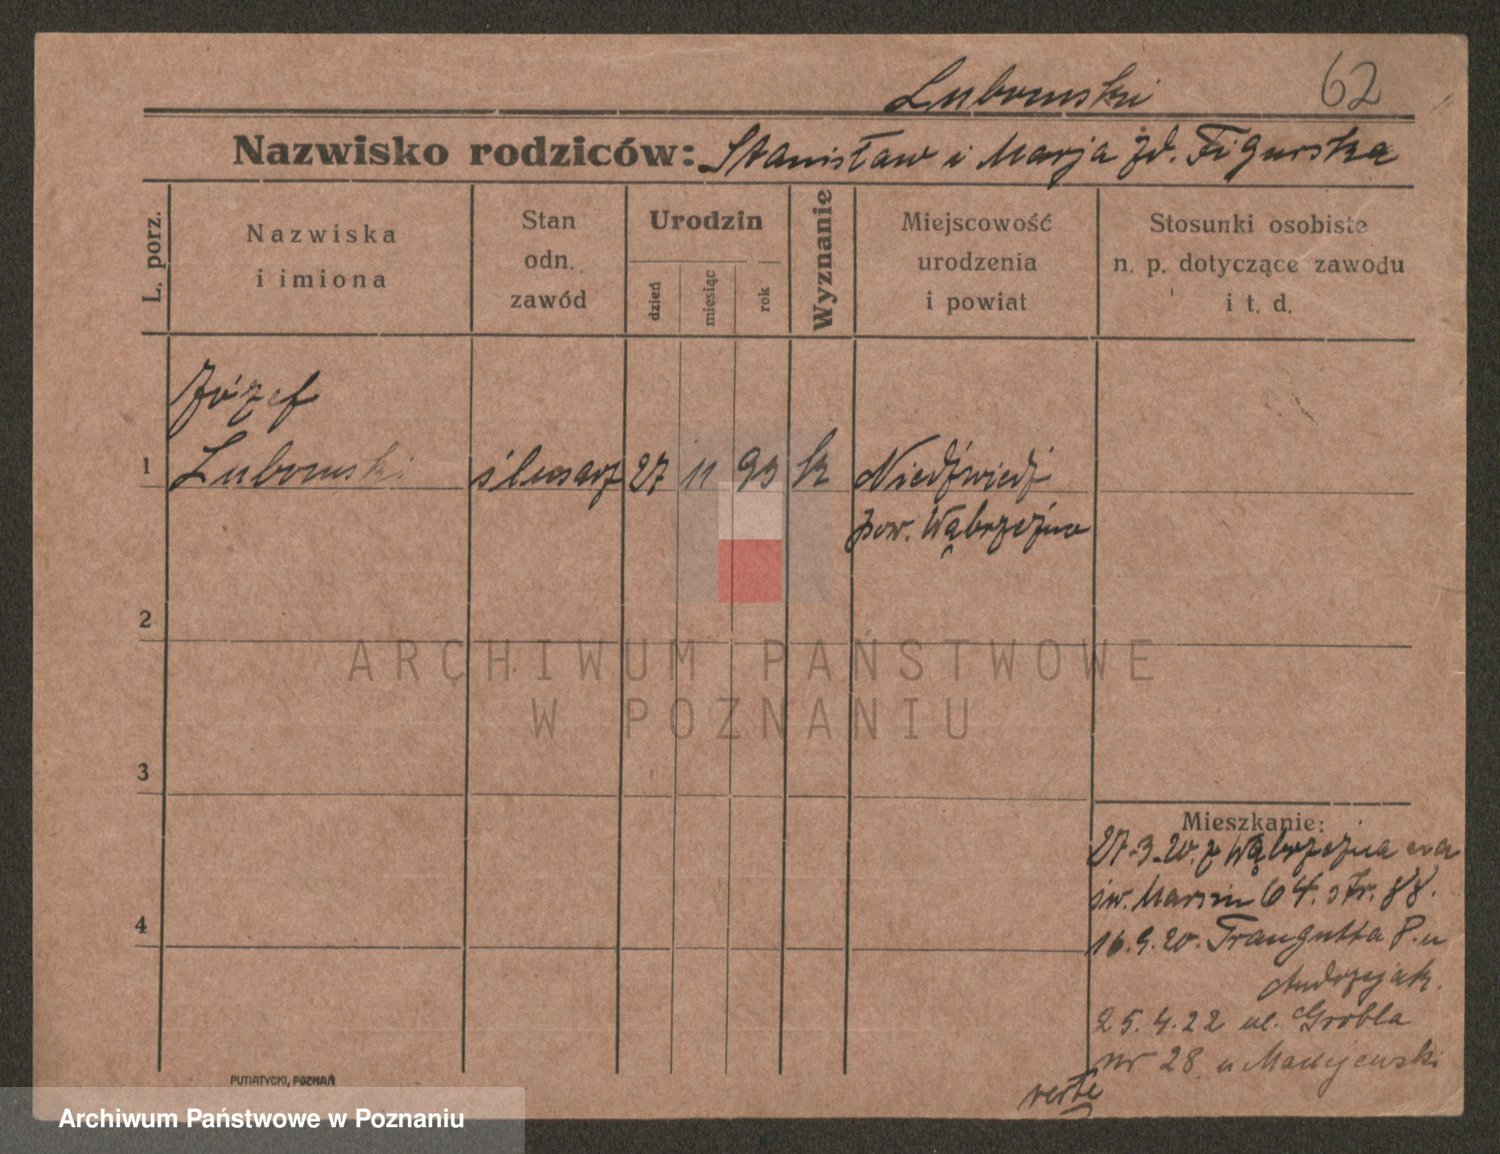 Lubomski
62
Nazwisko rodziców: Stanisław i Marja zd. Figurska
L. porz.
Nazwiska
i imiona
Stan
odn.
zawód
Urodzin
dzień
miesiąc
rok
Wyznanie
Miejscowość
urodzenia
i powiat
Stosunki osobiste
n. p. dotyczące zawodu
i t. d.
Józef
1 Lubomski ślusarz 27 11 99 k Niedźwiedź
pow. Wąbrzeźno
2
ARCHIWUM PAŃSTWOWE
W POZNANIU
3
Mieszkanie:
27.3.20. z Wąbrzeźna na
św. Marcin 64. str.
4
16.9.20. Traugutta 8. u
Andrzejak.
25.4.22 ul. Grobla
nr 28 u Maciejewski
verte
PUTIATYCKI, POZNAŃ
Archiwum Państwowe w Poznaniu